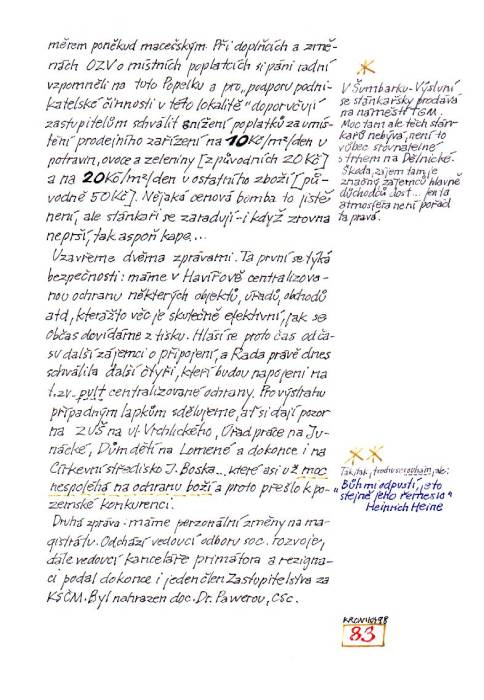 měrem poněkud macešským. Při doplňcích a změ-
nách OZV o místních poplatcích si páni radní
vzpomněli na tuto Popelku a pro „podporu podni-
katelské činnosti v této lokalitě" doporučují
zastupitelům schválit snížení poplatků za umís-
tění prodejního zařízení na 10 Kč/m²/den u
potravin, ovoce a zeleniny [z původních 20 Kč]
a na 20 Kč/m²/den u ostatního zboží [pů-
vodně 50 Kč]. Nějaká cenová bomba to jistě
není, ale stánkaři se zaradují - i když zrovna
neprší, tak aspoň kape...
Uzavřeme dvěma zprávami. Ta první se týká
bezpečnosti: máme v Havířově centralizova-
nou ochranu některých objektů, úřadů, obchodů
atd, kterážto věc je skutečně efektivní, jak se
občas dovídáme z tisku. Hlásí se proto čas od ča-
su další zájemci o připojení, a Rada právě dnes
schválila další čtyři, kteří budou napojeni na
t.zv. pult centralizované ochrany. Pro výstrahu
případným lapkům sdělujeme, ať si dají pozor
na ZUŠ na ul. Vrchlického, Úřad práce na Ju-
nácké, Dům dětí na Lomené a dokonce i na
Církevní středisko J. Boska... které asi už moc
nespoléhá na ochranu boží a proto přešlo k po-
zemské konkurenci.
Druhá zpráva - máme personální změny na ma-
gistrátu. Odchází vedoucí odboru soc. rozvoje,
dále vedoucí kanceláře primátora a rezigna-
ci podal dokonce i jeden člen Zastupitelstva za
KSČM. Byl nahrazen doc. Dr. Pawerou, CSc.
V Šumbarku-Výsluní
se stánkařsky prodává
na náměstí TGM.
Moc tam ale těch stán-
kařů nebývá, není to
vůbec srovnatelné
s trhem na Dělnické.
Škoda, zájem tam je
značný zájemců hlavně
důchodců dost... ta
atmosféra není pořád
ta pravá.
Tak, tak, trochu se rouhám, ale:
„Bůh mi odpustí, je to
stejně jeho řemeslo"
Heinrich Heine
KRONIKA 98
83